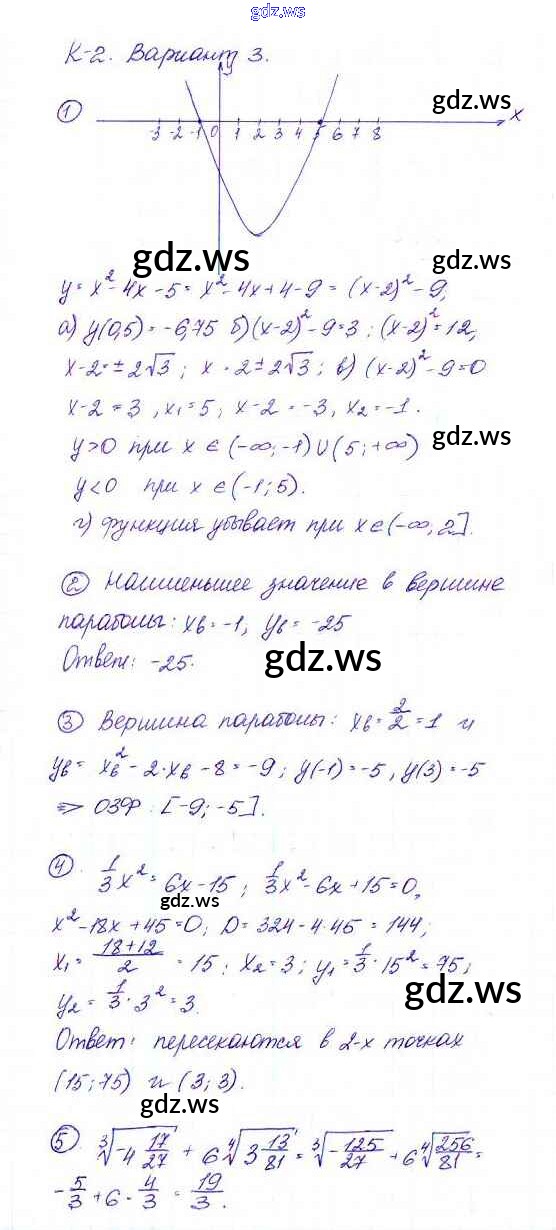 gdz.ws
К-2. Вариант 3.
y
① gdz.ws
-3 -2 -1 0 1 2 3 4 5 6 7 8 x
gdz.ws gdz.ws
y = x² - 4x - 5 = x² - 4x + 4 - 9 = (x-2)² - 9;
а) y(0,5) = -6,75 б) (x-2)² - 9 = 3; (x-2)² = 12,
x - 2 = ± 2√3; x = 2 ± 2√3; в) (x-2)² - 9 = 0
x - 2 = 3, x₁ = 5; x - 2 = -3, x₂ = -1.
y > 0 при x ∈ (-∞; -1) ∪ (5; +∞) gdz.ws
y < 0 при x ∈ (-1; 5).
г) функция убывает при x ∈ (-∞, 2].
② Наименьшее значение в вершине
параболы: xв = -1, yв = -25
Ответ: -25. gdz.ws
③ Вершина параболы: xв = 2/2 = 1 и
yв = xв² - 2·xв - 8 = -9; y(-1) = -5, y(3) = -5
=> ОЗФ: [-9; -5].
④ 1/3 x² = 6x - 15; 1/3 x² - 6x + 15 = 0,
gdz.ws
x² - 18x + 45 = 0; D = 324 - 4·45 = 144;
x₁ = (18+12)/2 = 15; x₂ = 3; y₁ = 1/3 · 15² = 75;
y₂ = 1/3 · 3² = 3. gdz.ws
Ответ: пересекаются в 2-х точках
(15; 75) и (3; 3).
gdz.ws
⑤ ∛(-4 17/27) + 6 ∜(3 13/81) = ∛(-125/27) + 6 ∜(256/81) =
-5/3 + 6 · 4/3 = 19/3.
gdz.ws